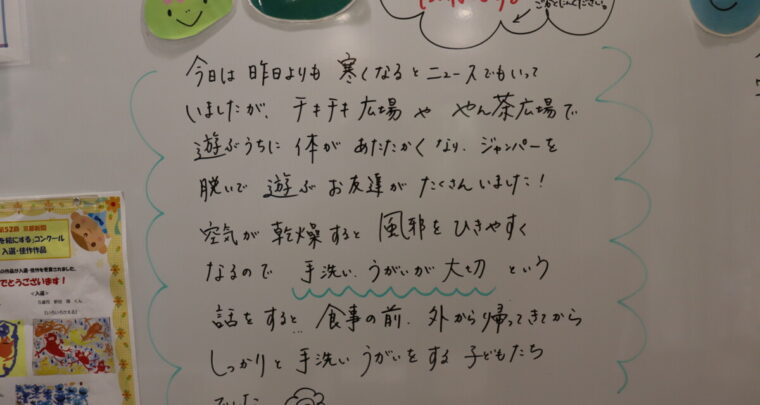 ごらんください。
今日は 昨日よりも 寒くなると ニュースでもいって
いましたが、チキチキ広場や やん茶広場で
遊ぶうちに 体が あたたかくなり、ジャンパーを
脱いで 遊ぶ お友達が たくさんいました！
空気が 乾燥すると 風邪を ひきやすく
なるので 手洗い、うがいが大切 という
話をすると… 食事の前、外から帰ってきてから
しっかりと 手洗い うがいをする 子どもたち
でした
第52回 京都新聞
を絵にする」コンクール
入選・佳作作品
の作品が入選・佳作を受賞されました。
でとうございます！
＜入選＞